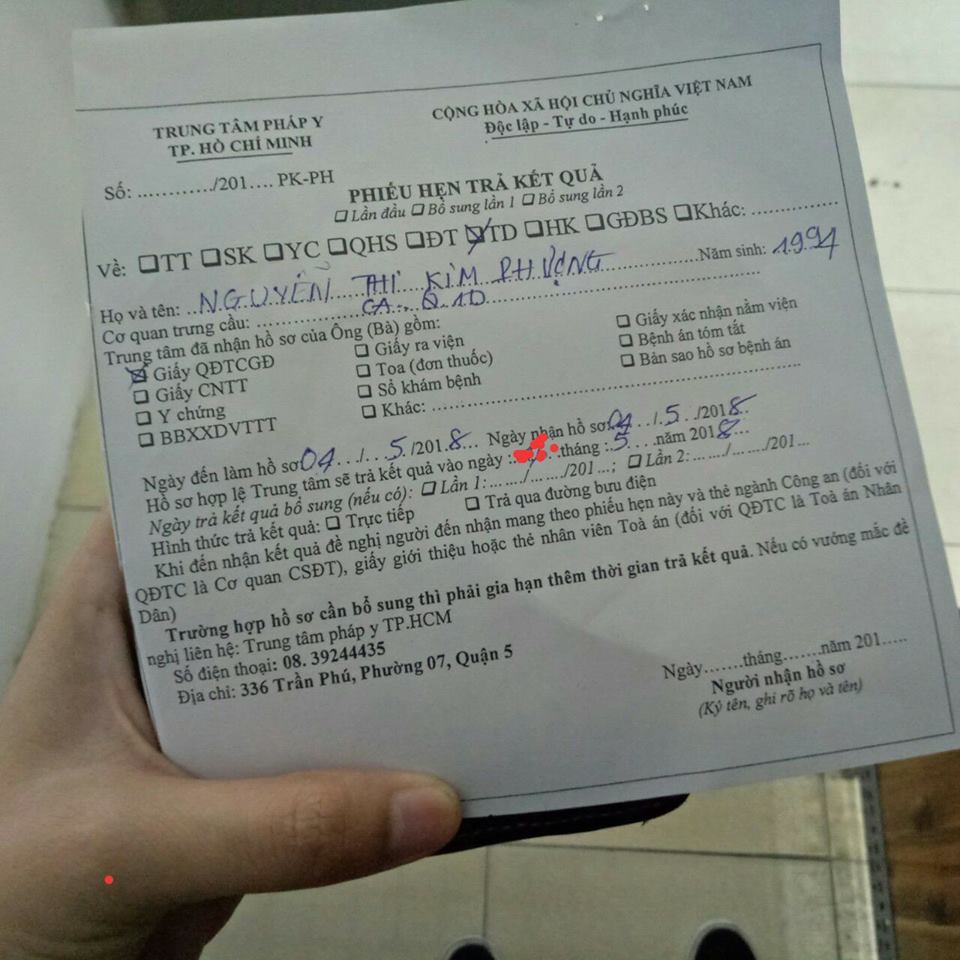 TRUNG TÂM PHÁP Y
TP. HỒ CHÍ MINH
CỘNG HÒA XÃ HỘI CHỦ NGHĨA VIỆT NAM
Độc lập - Tự do - Hạnh phúc
Số: .........../201.... PK-PH
PHIẾU HẸN TRẢ KẾT QUẢ
❑ Lần đầu ❑ Bổ sung lần 1 ❑ Bổ sung lần 2
Về: ❑TT ❑SK ❑YC ❑QHS ❑ĐT ☑TD ❑HK ❑GĐBS ❑Khác: ...............
Họ và tên: NGUYỄN THỊ KIM PHƯỢNG Năm sinh: 1994
Cơ quan trưng cầu: CA. Q 10
Trung tâm đã nhận hồ sơ của Ông (Bà) gồm:
☒ Giấy QĐTCGĐ ❑ Giấy ra viện ❑ Giấy xác nhận nằm viện
❑ Giấy CNTT ❑ Toa (đơn thuốc) ❑ Bệnh án tóm tắt
❑ Y chứng ❑ Sổ khám bệnh ❑ Bản sao hồ sơ bệnh án
❑ BBXXDVTTT ❑ Khác: ...............
Ngày đến làm hồ sơ 04 / 5 /2018 Ngày nhận hồ sơ: 04 / 5 /2018
Hồ sơ hợp lệ Trung tâm sẽ trả kết quả vào ngày : tháng : 5 năm 2018
Ngày trả kết quả bổ sung (nếu có): ❑ Lần 1: ....../....../201...; ❑ Lần 2: ....../....../201...
Hình thức trả kết quả: ❑ Trực tiếp ❑ Trả qua đường bưu điện
Khi đến nhận kết quả đề nghị người đến nhận mang theo phiếu hẹn này và thẻ ngành Công an (đối với
QĐTC là Cơ quan CSĐT), giấy giới thiệu hoặc thẻ nhân viên Toà án (đối với QĐTC là Toà án Nhân
Dân)
Trường hợp hồ sơ cần bổ sung thì phải gia hạn thêm thời gian trả kết quả. Nếu có vướng mắc đề
nghị liên hệ: Trung tâm pháp y TP.HCM
Số điện thoại: 08. 39244435
Địa chỉ: 336 Trần Phú, Phường 07, Quận 5
Ngày.......tháng.......năm 201.....
Người nhận hồ sơ
(Ký tên, ghi rõ họ và tên)